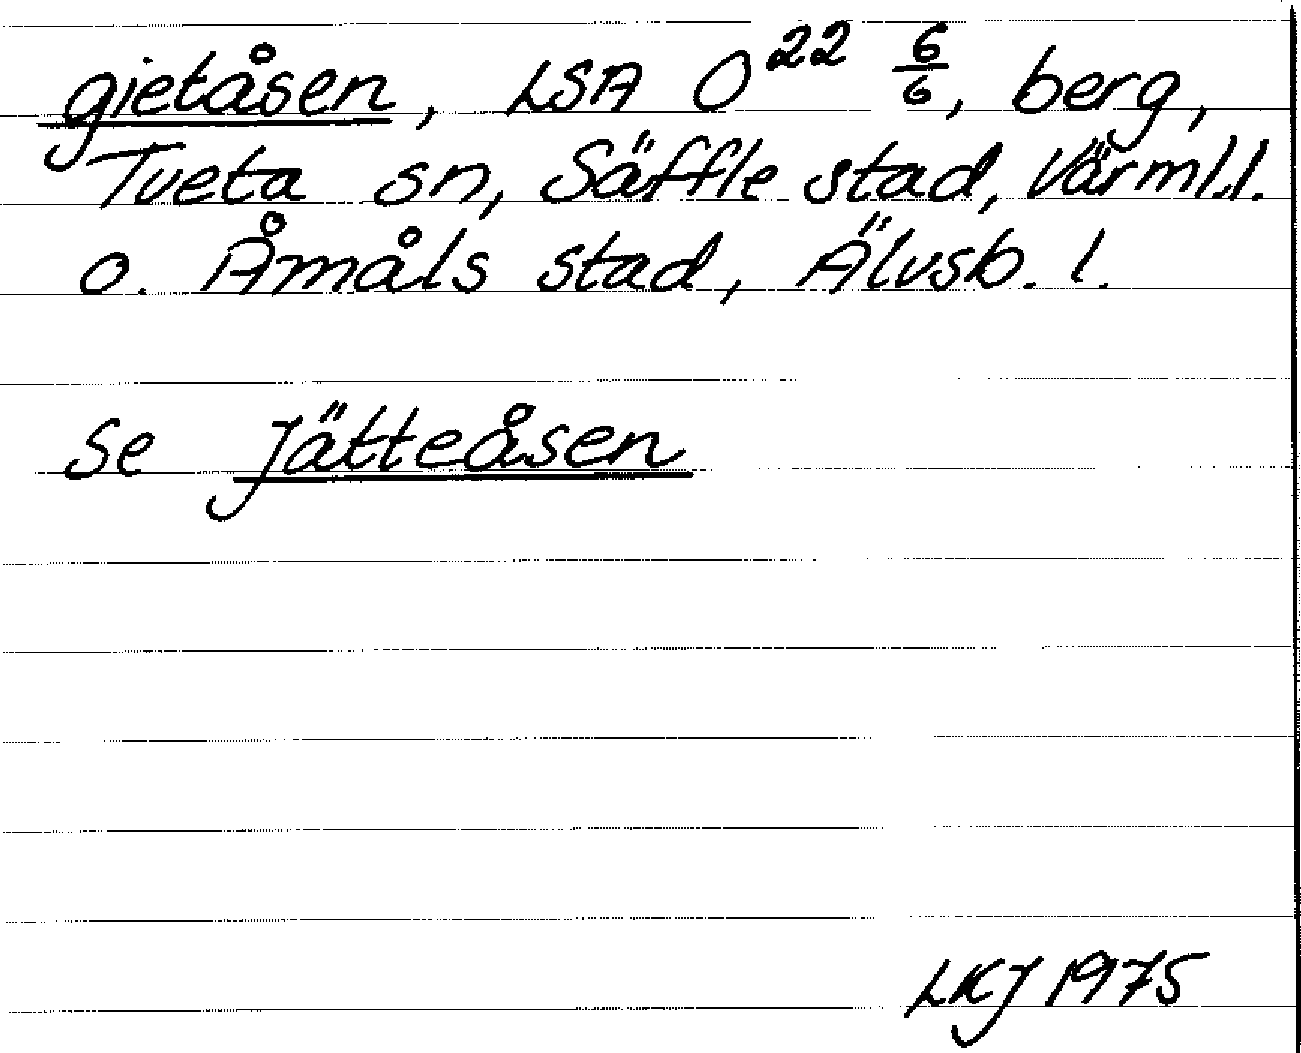 gjetåsen, LSA O²² 6/6, berg,
Tveta sn, Säffle stad, Värml.l.
o. Åmåls stad, Älvsb. l.
Se Jätteåsen
LKJ 1975